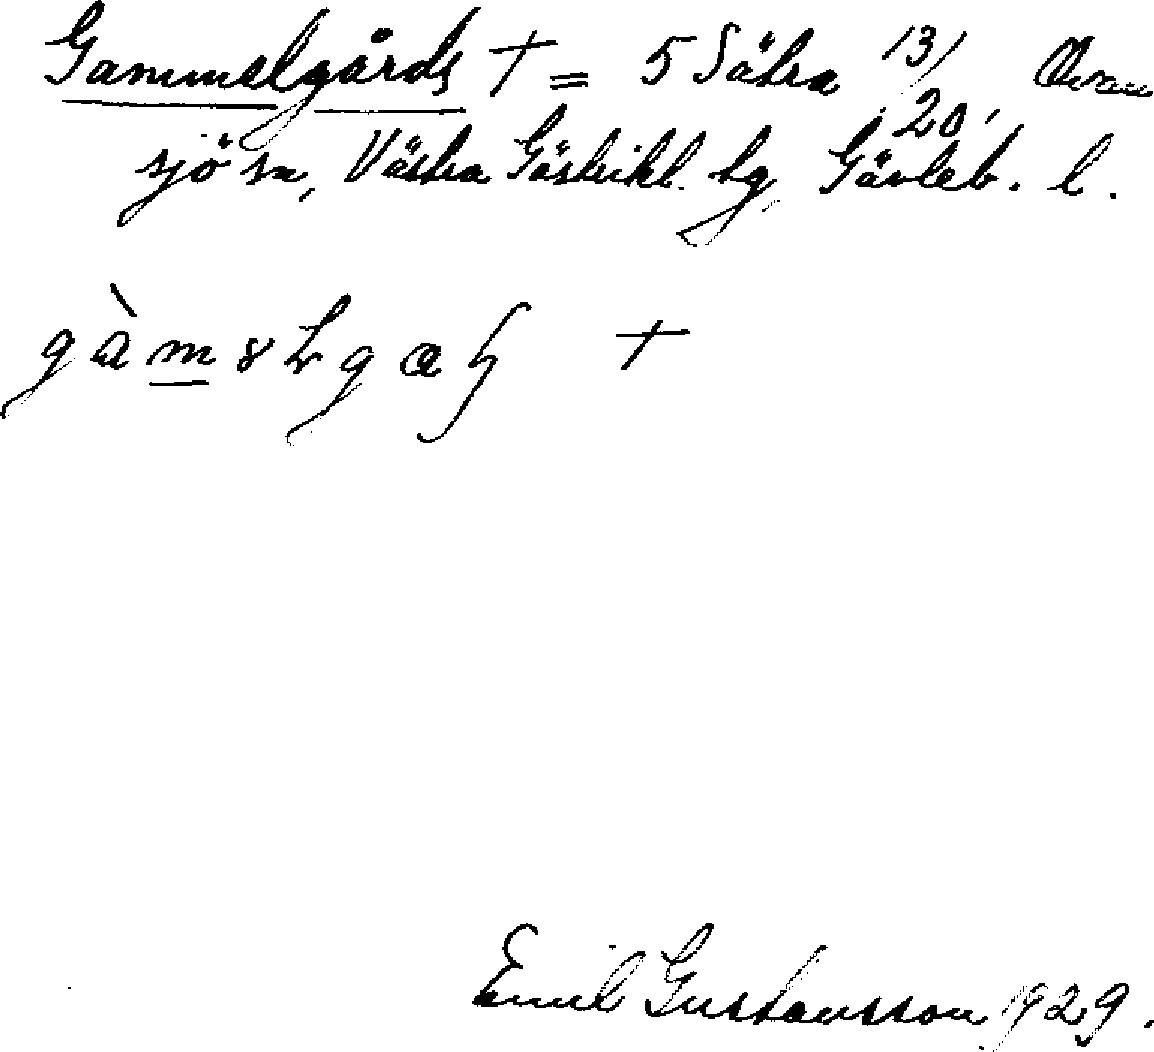 Gammelgårds † = 5 Sätra 13/20, Ovan
sjö sn, Västra Gästrikl. hg, Gävleb. l.
gàm
†
Emil Gustavsson 1929.